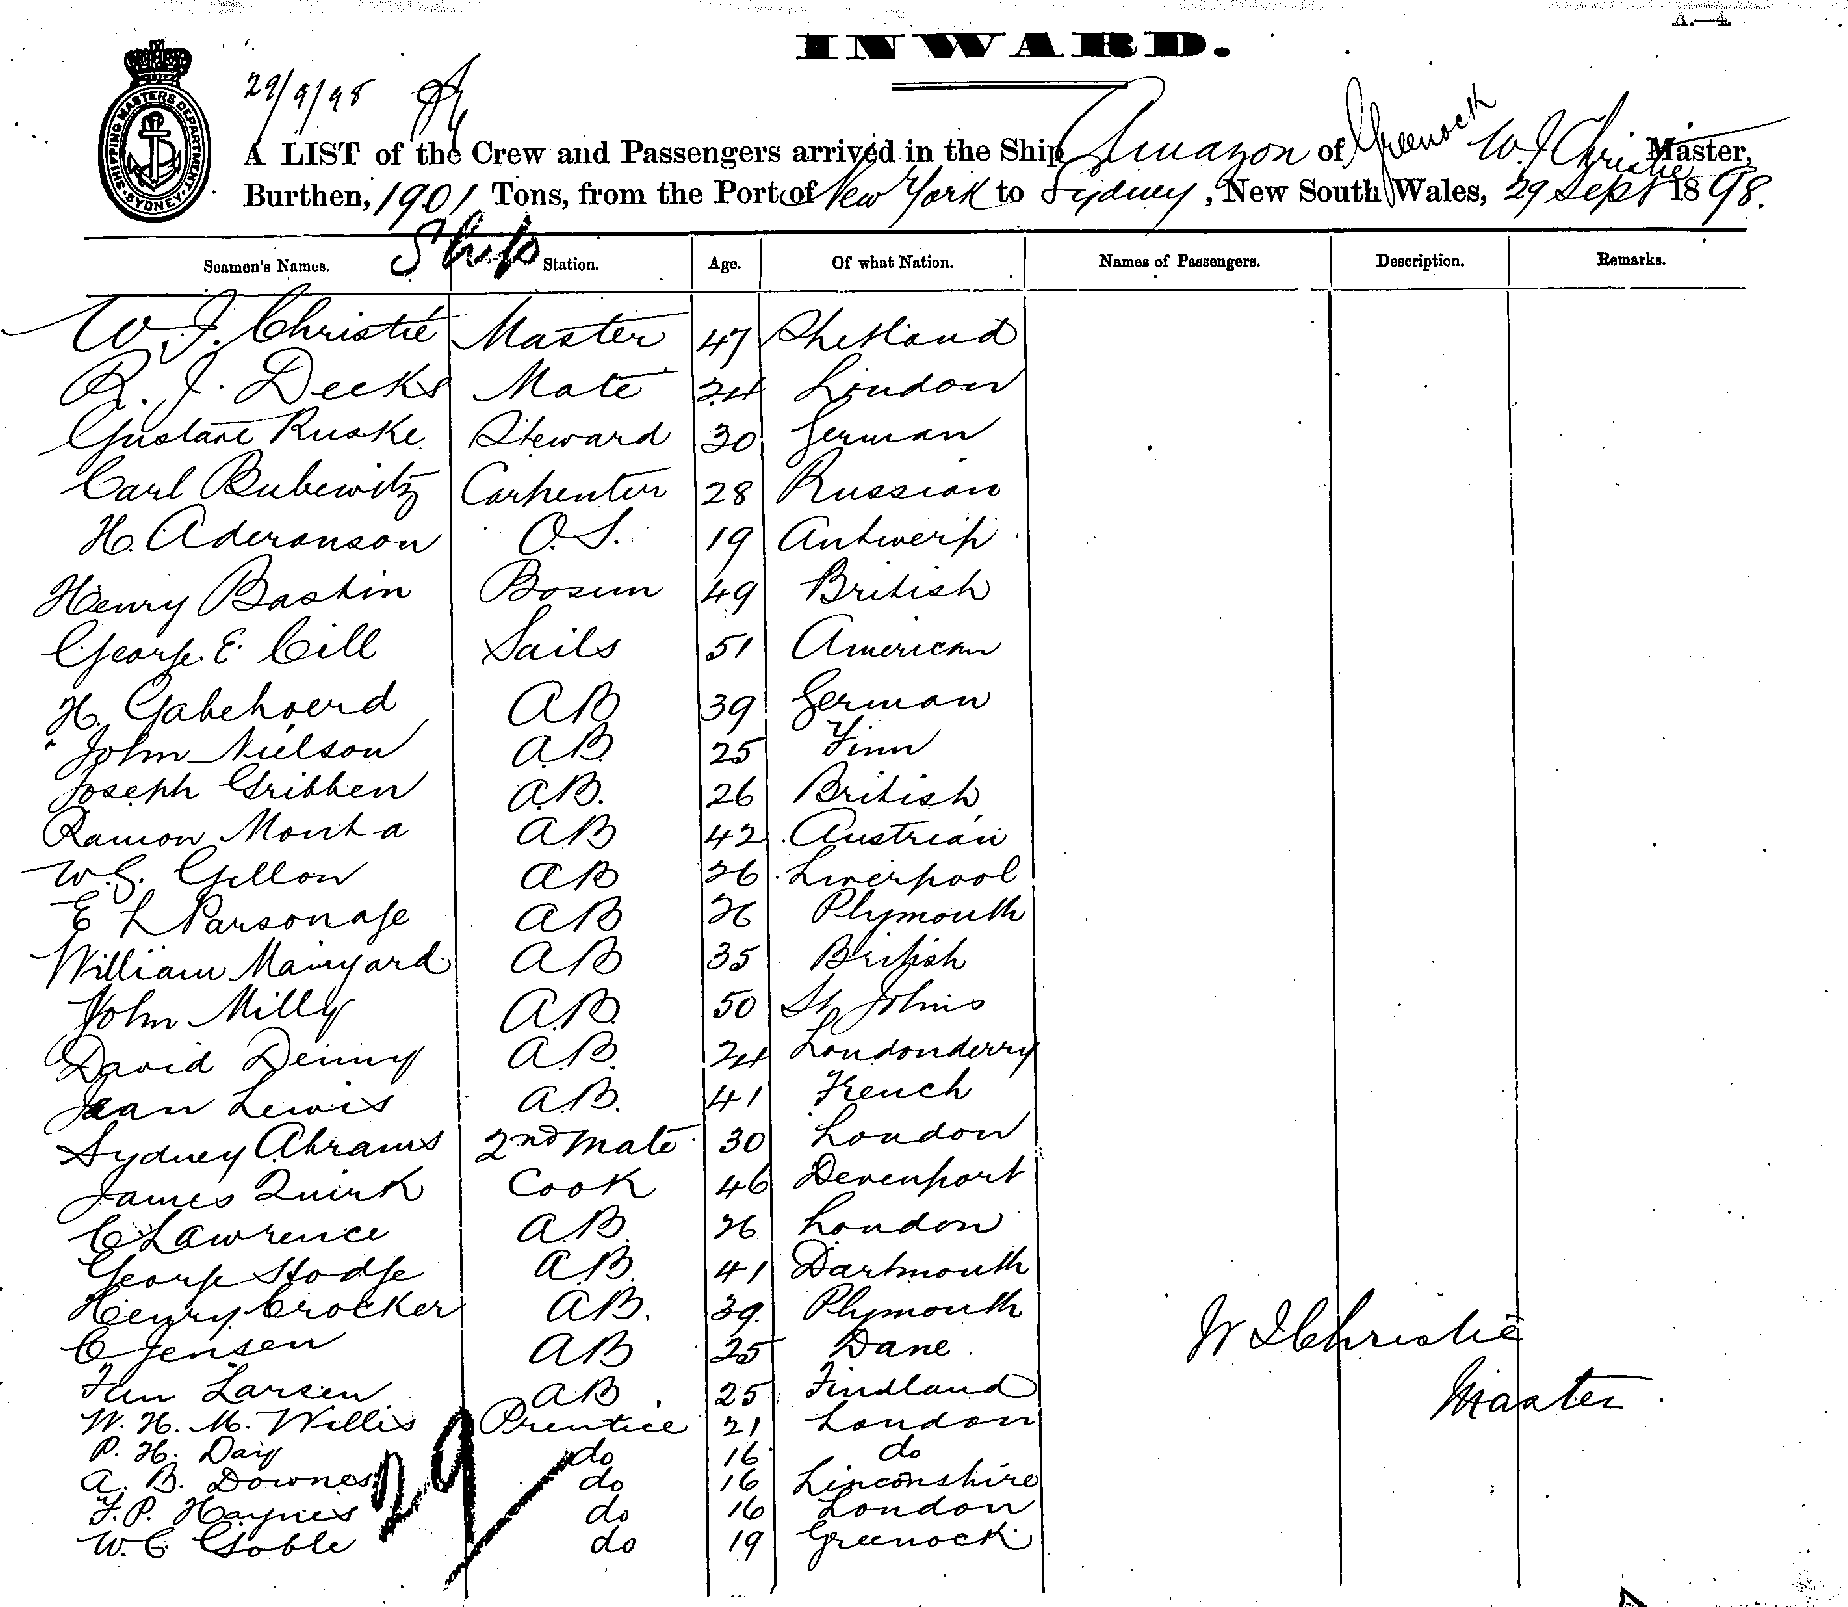 A.—4
INWARD.
29/9/98
SHIPPING MASTERS DEPARTMENT SYDNEY
A LIST of the Crew and Passengers arrived in the Ship Amazon of Greenock W J Christie Master,
Burthen, 1901 Tons, from the Port of New York to Sydney, New South Wales, 29 Sept 1898.
Ships
Seamen's Names. Station. Age. Of what Nation. Names of Passengers. Description. Remarks.
W. J. Christie Master 47 Shetland
R. J. Decks Mate 24 London
Gustave Ruske Steward 30 German
Carl Bubewitz Carpenter 28 Russian
H. Aderanson O.S. 19 Antwerp
Henry Bastin Bosun 49 British
George E. Cill Sails 51 American
H. Gabehoerd AB 39 German
John Nielson A.B. 25 Finn
Joseph Gribben A.B. 26 British
Ramon Monta AB 42 Austrian
W.G. Gillon AB 26 Liverpool
E L Parsonage AB 26 Plymouth
William Mainyard AB 35 British
John Milly A.B. 50 St Johns
David Denny A.B. 24 Londonderry
Jean Lewis A.B. 41 French
Sydney Abrams 2nd Mate 30 London
James Quirk Cook 46 Devenport
C Lawrence A.B. 26 London
George Hodge A.B. 41 Dartmouth
Henry Crocker AB. 39 Plymouth
C Jensen AB 25 Dane
W J Christie
Larsen AB 25 Findland
Master
W. H. M. Willis Prentice 21 London
P. H. Day do 16 do
A. B. Downes do 16 Linconshire
F. P. Haynes do 16 London
W. C Goble do 19 Greenock
29